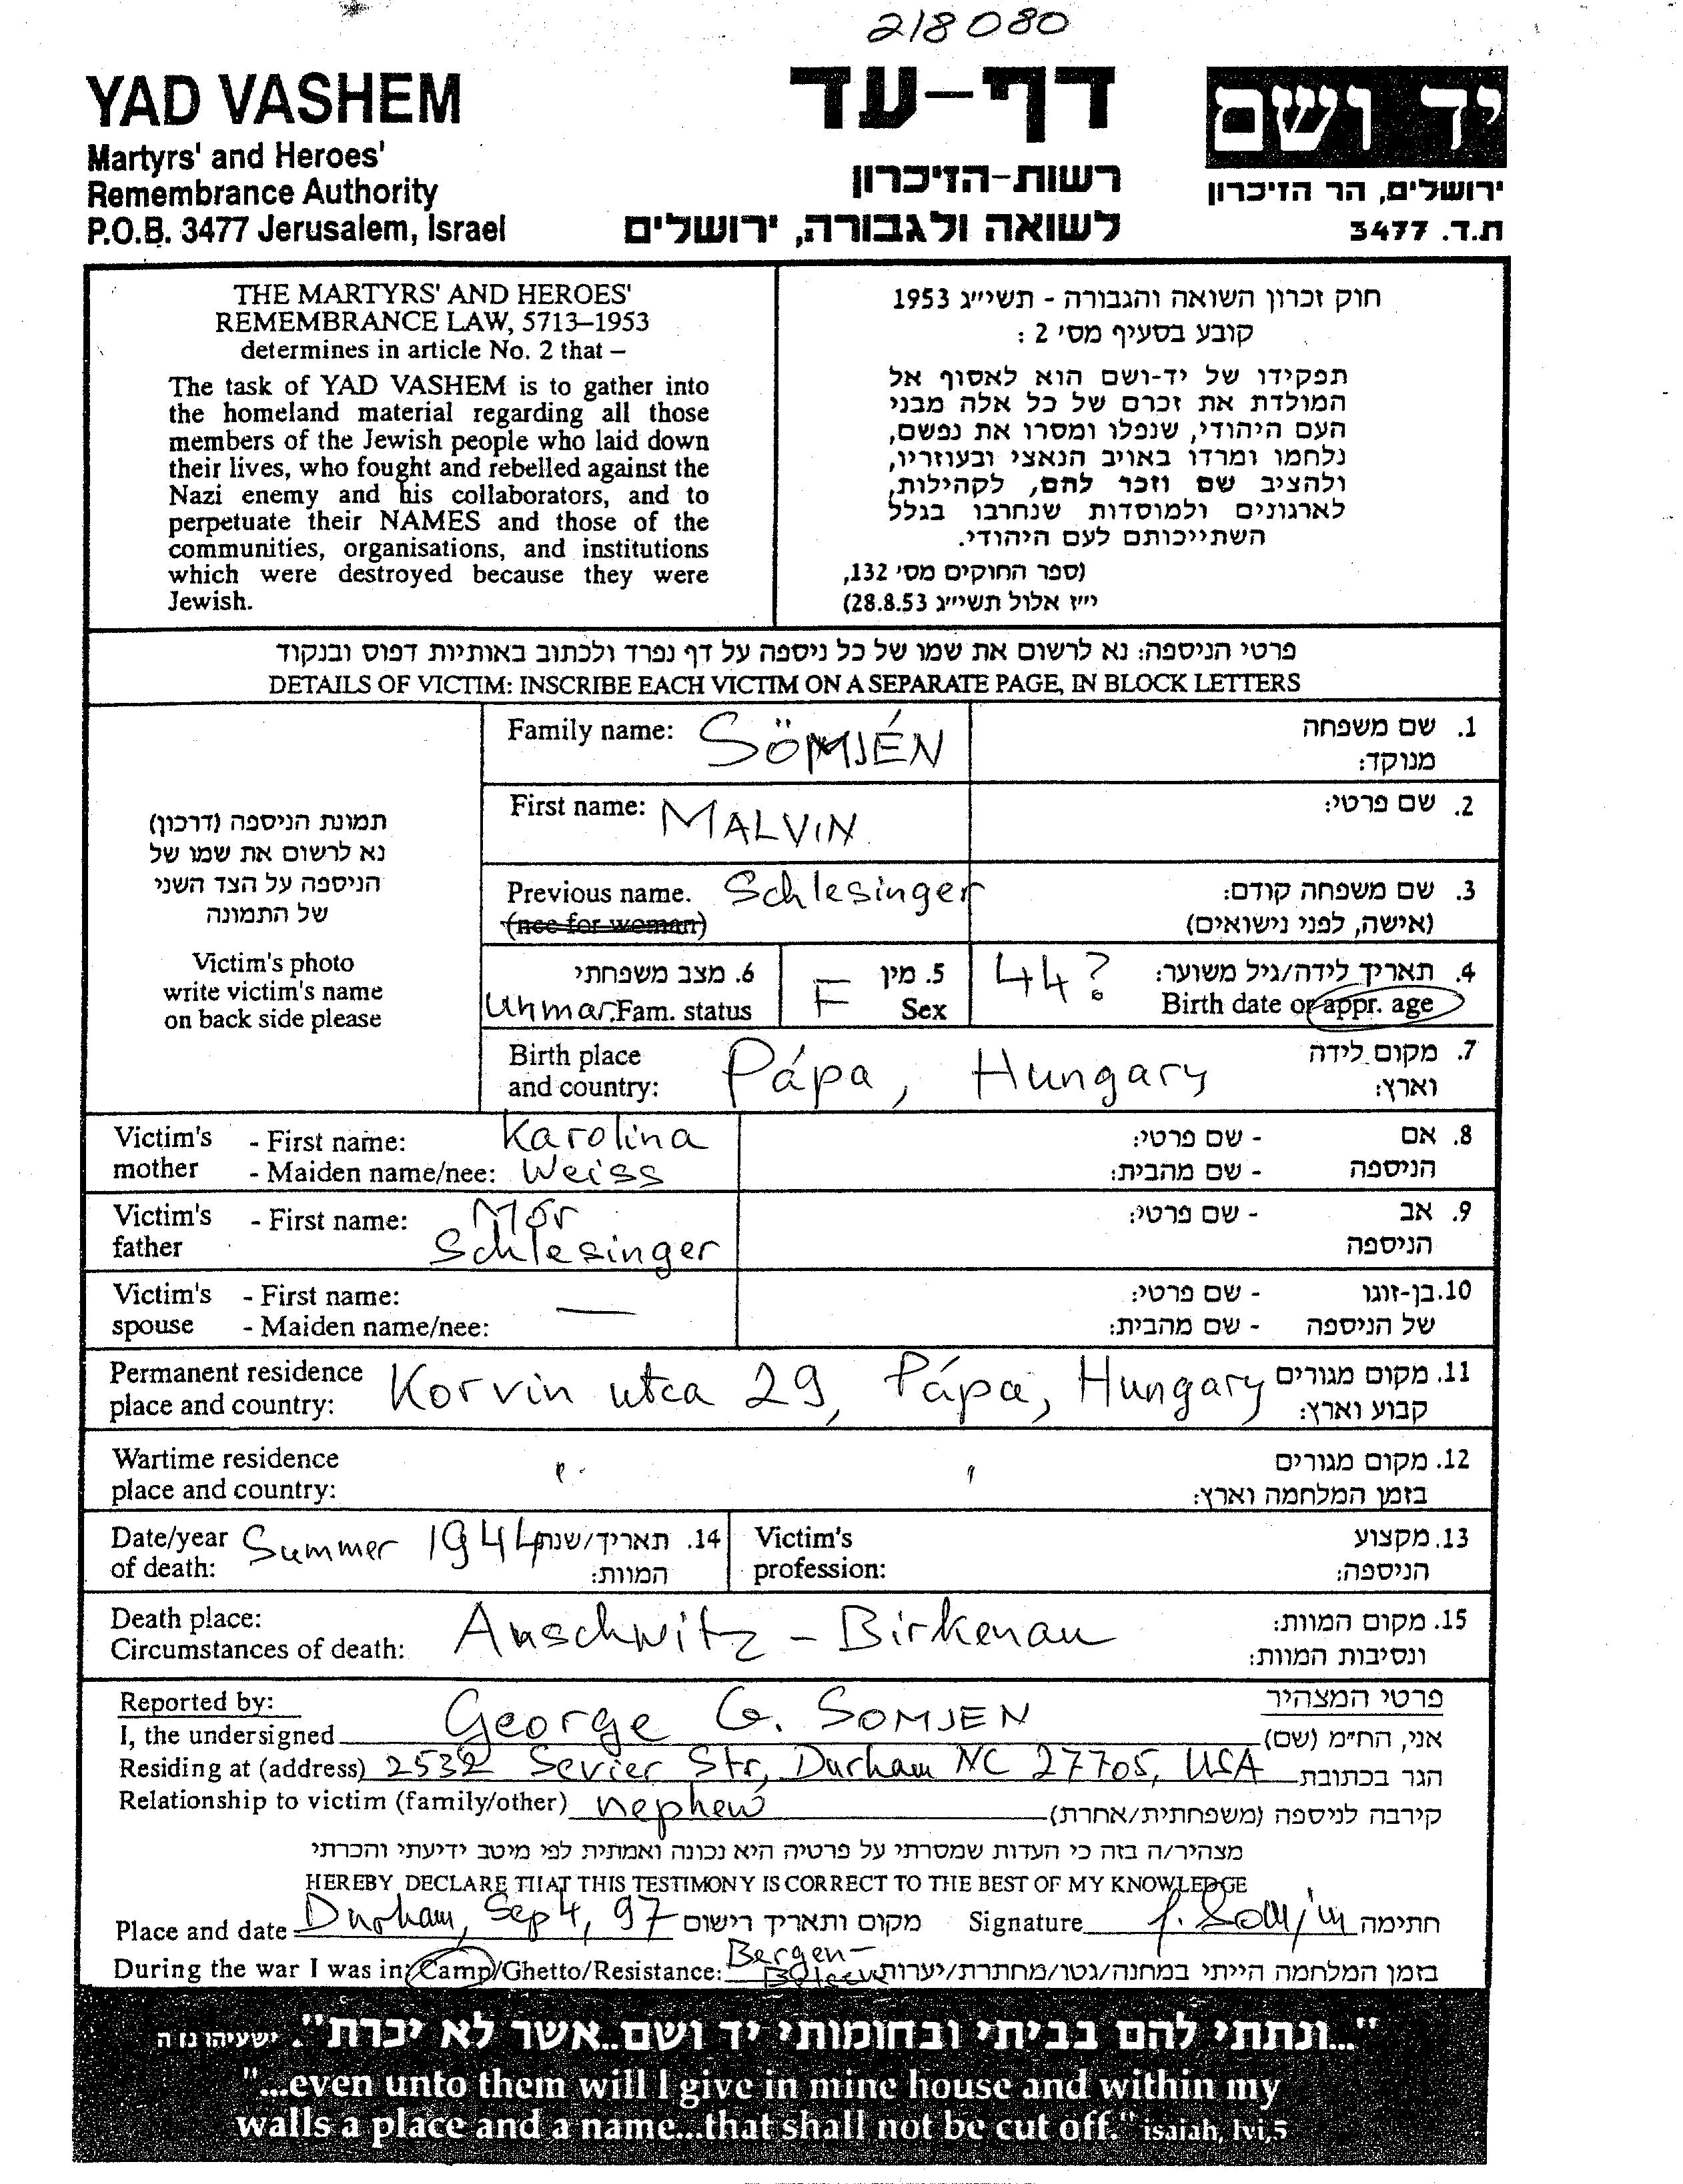 218080
YAD VASHEM
Martyrs' and Heroes'
Remembrance Authority
P.O.B. 3477 Jerusalem, Israel
דף-עד
רשות-הזיכרון
לשואה ולגבורה, ירושלים
יד ושם
ירושלים, הר הזיכרון
ת.ד. 3477
THE MARTYRS' AND HEROES'
REMEMBRANCE LAW, 5713–1953
determines in article No. 2 that –
The task of YAD VASHEM is to gather into
the homeland material regarding all those
members of the Jewish people who laid down
their lives, who fought and rebelled against the
Nazi enemy and his collaborators, and to
perpetuate their NAMES and those of the
communities, organisations, and institutions
which were destroyed because they were
Jewish.
חוק זכרון השואה והגבורה - תשי״ג 1953
קובע בסעיף מס׳ 2 :
תפקידו של יד-ושם הוא לאסוף אל
המולדת את זכרם של כל אלה מבני
העם היהודי, שנפלו ומסרו את נפשם,
נלחמו ומרדו באויב הנאצי ובעוזריו,
ולהציב שם וזכר להם, לקהילות,
לארגונים ולמוסדות שנחרבו בגלל
השתייכותם לעם היהודי.
(ספר החוקים מס׳ 132,
י״ז אלול תשי״ג 28.8.53)
פרטי הניספה: נא לרשום את שמו של כל ניספה על דף נפרד ולכתוב באותיות דפוס ובנקוד
DETAILS OF VICTIM: INSCRIBE EACH VICTIM ON A SEPARATE PAGE, IN BLOCK LETTERS
תמונת הניספה (דרכון)
נא לרשום את שמו של
הניספה על הצד השני
של התמונה
Victim's photo
write victim's name
on back side please
Family name: SÖMJÉN 1. שם משפחה
מנוקד:
First name: MALVIN 2. שם פרטי:
Previous name. Schlesinger 3. שם משפחה קודם:
(nee for woman) (אישה, לפני נישואים)
6. מצב משפחתי 5. מין 44? 4. תאריך לידה/גיל משוער:
Unmar. Fam. status F Sex Birth date or appr. age
Birth place Pápa, Hungary 7. מקום לידה
and country: וארץ:
Victim's - First name: Karolina - שם פרטי: 8. אם
mother - Maiden name/nee: Weiss - שם מהבית: הניספה
Victim's - First name: Mór - שם פרטי: 9. אב
father Schlesinger הניספה
Victim's - First name: — - שם פרטי: 10. בן-זוגו
spouse - Maiden name/nee: - שם מהבית: של הניספה
Permanent residence Korvin utca 29, Pápa, Hungary 11. מקום מגורים
place and country: קבוע וארץ:
Wartime residence 〃 〃 12. מקום מגורים
place and country: בזמן המלחמה וארץ:
Date/year Summer 1944 14. תאריך/שנת Victim's 13. מקצוע
of death: המוות: profession: הניספה:
Death place: Auschwitz - Birkenau 15. מקום המוות:
Circumstances of death: ונסיבות המוות:
Reported by: פרטי המצהיר
I, the undersigned George G. SOMJEN אני, הח״מ (שם)
Residing at (address) 2532 Sevier Str, Durham NC 27705, USA הגר בכתובת
Relationship to victim (family/other) nephew קירבה לניספה (משפחתית/אחרת)
מצהיר/ה בזה כי העדות שמסרתי על פרטיה היא נכונה ואמתית לפי מיטב ידיעתי והכרתי
HEREBY DECLARE THAT THIS TESTIMONY IS CORRECT TO THE BEST OF MY KNOWLEDGE
Place and date Durham, Sep 4, 97 מקום ותאריך רישום Signature G. Somjen חתימה
During the war I was in: Camp/Ghetto/Resistance: Bergen- בזמן המלחמה הייתי במחנה/גטו/מחתרת/יערות
"...ונתתי להם בביתי ובחומותי יד ושם..אשר לא יכרת". ישעיהו נו ה
"...even unto them will I give in mine house and within my
walls a place and a name...that shall not be cut off." isaiah, lvi,5